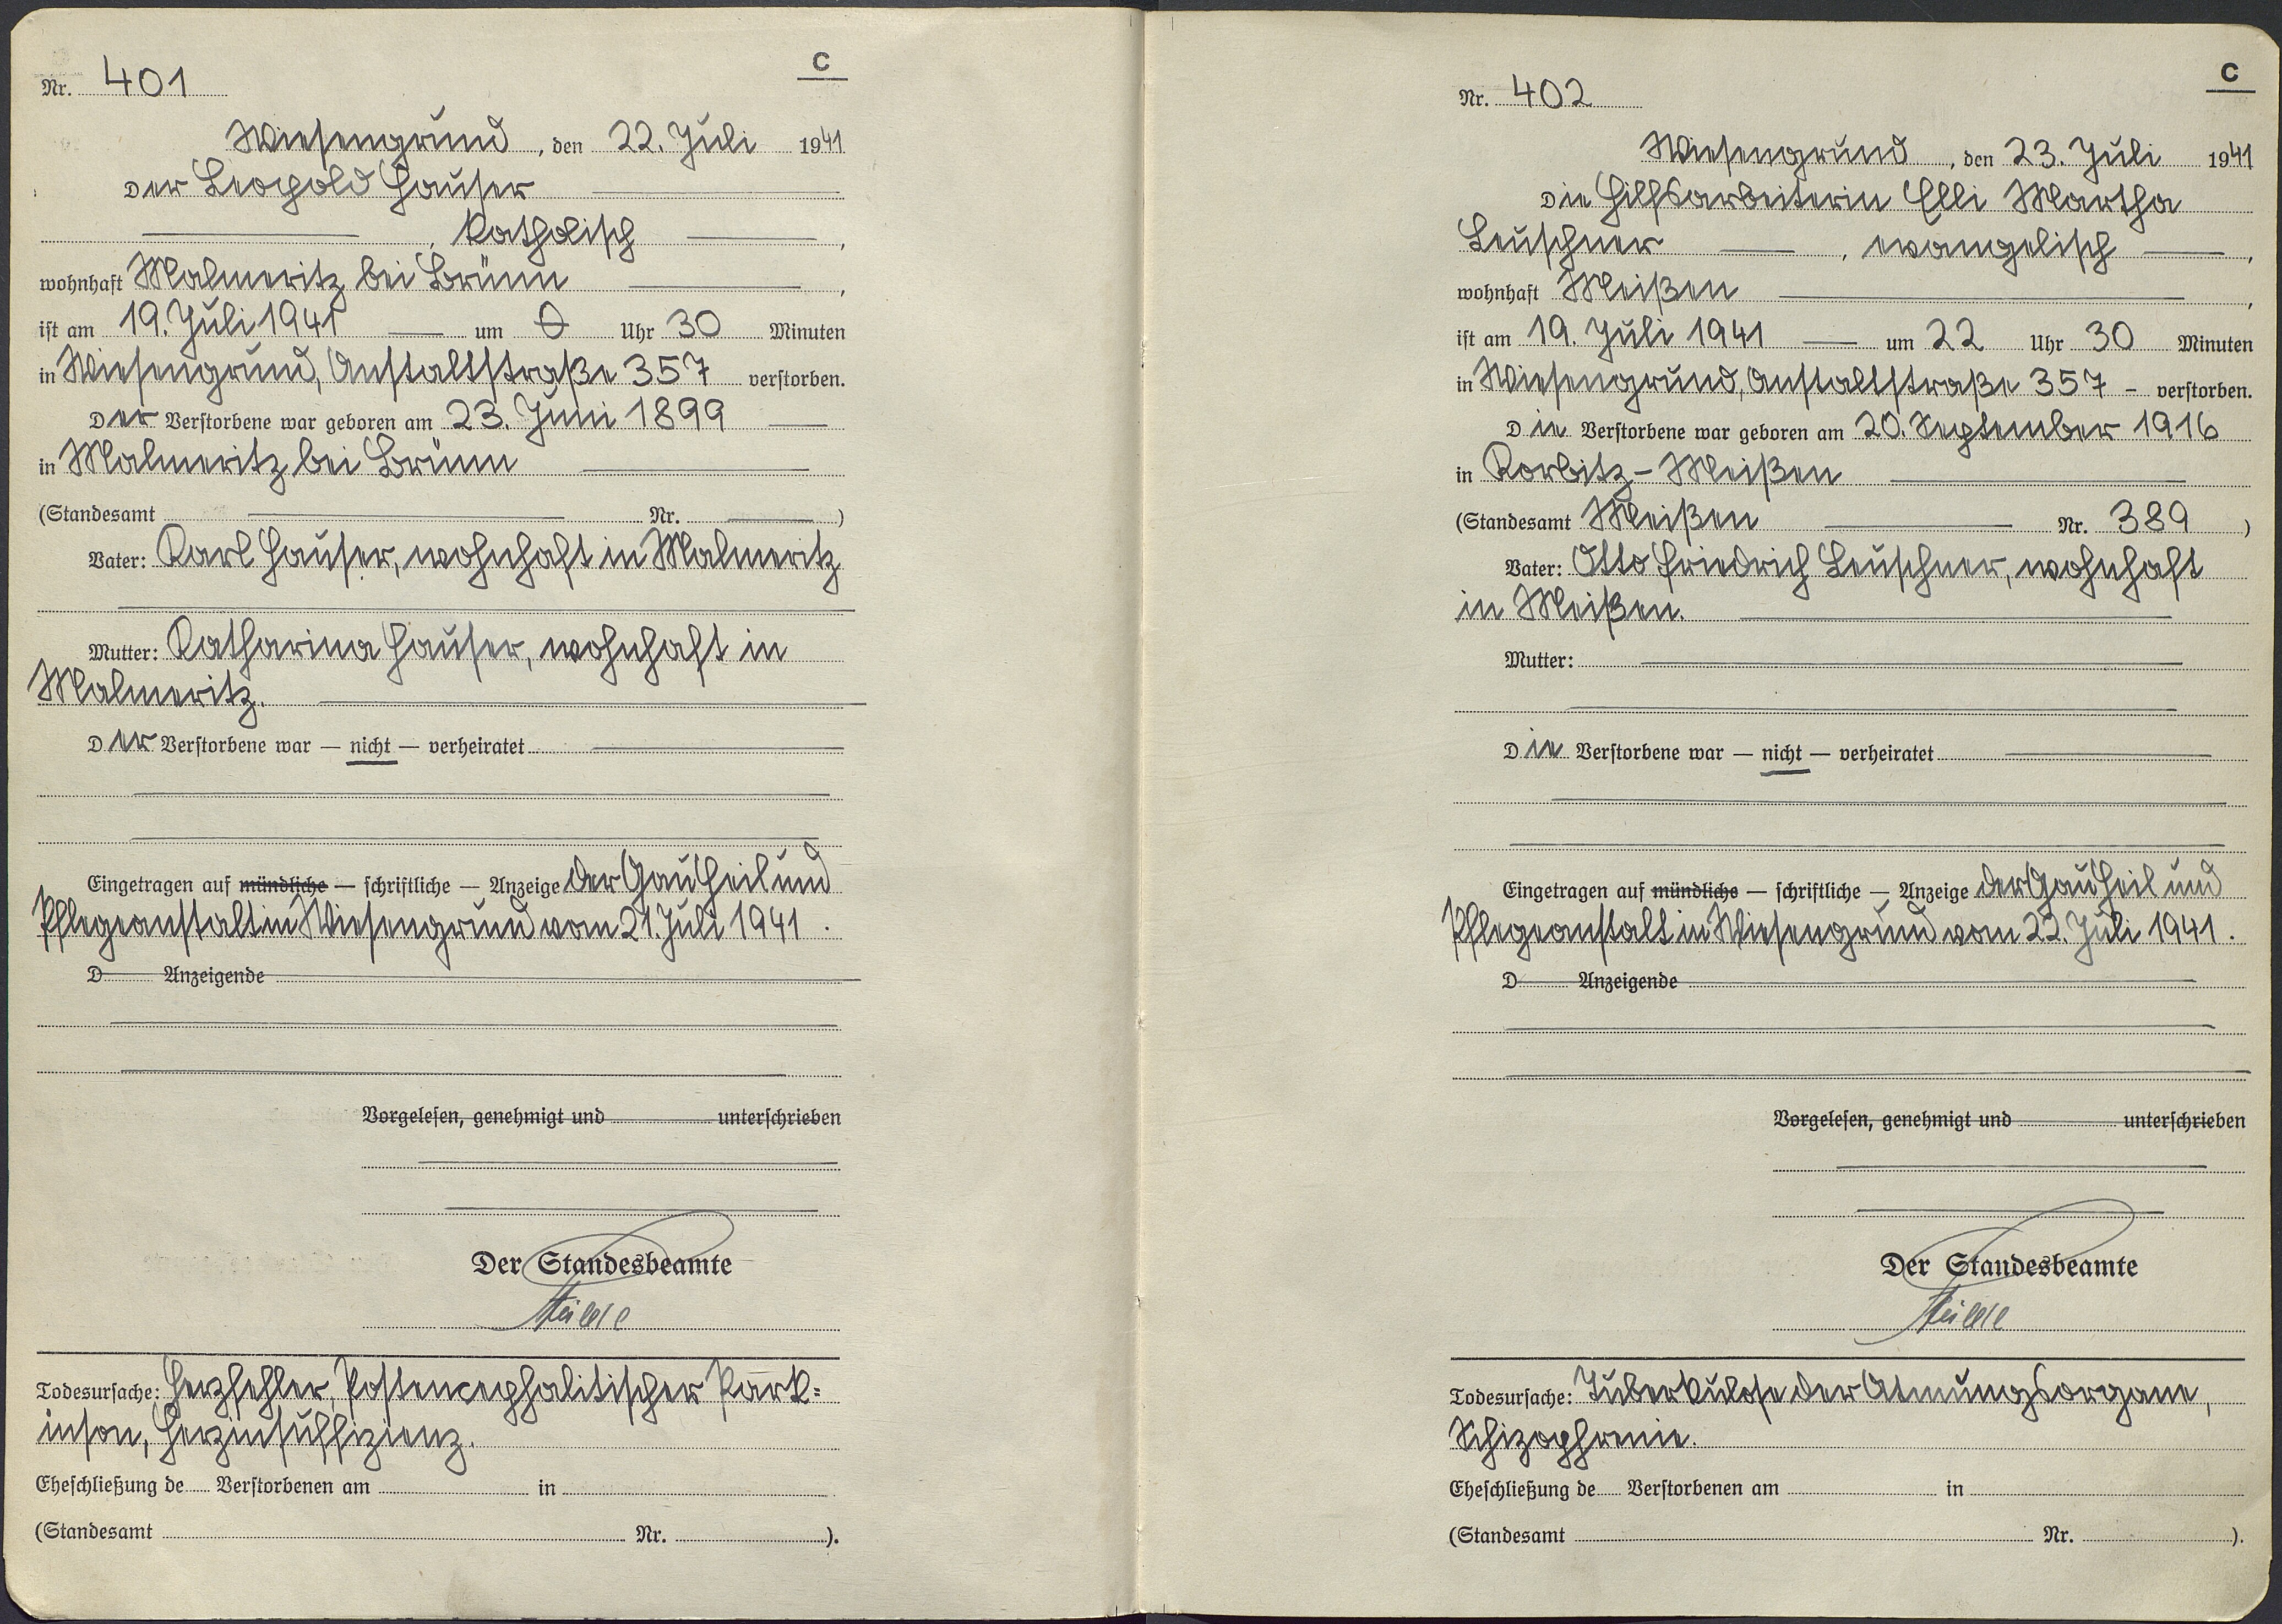 C
Nr. 401
Wiesengrund, den 22. Juli 1941
Der Leopold Hauser
, katholisch ,
wohnhaft Malmeritz bei Brünn ,
ist am 19. Juli 1941 um 0 Uhr 30 Minuten
in Wiesengrund, Anstaltstraße 357 verstorben.
Der Verstorbene war geboren am 23. Juni 1899
in Malmeritz bei Brünn
(Standesamt Nr. )
Vater: Karl Hauser, wohnhaft in Malmeritz
Mutter: Katharina Hauser, wohnhaft in
Malmeritz.
Der Verstorbene war — nicht — verheiratet
Eingetragen auf mündliche — schriftliche — Anzeige der Gau Heil und
Pflegeanstalt in Wiesengrund vom 21. Juli 1941.
D Anzeigende
Vorgelesen, genehmigt und unterschrieben
Der Standesbeamte
Todesursache: Herzfehler, Postencephalitischer Park=
inson, Herzinsuffizienz.
Eheschließung de Verstorbenen am in
(Standesamt Nr. ).
C
Nr. 402
Wiesengrund, den 23. Juli 1941
Die Hilfsarbeiterin Elli Martha
Leuschner , evangelisch ,
wohnhaft Meißen ,
ist am 19. Juli 1941 um 22 Uhr 30 Minuten
in Wiesengrund, Anstaltstraße 357 - verstorben.
Die Verstorbene war geboren am 20. September 1916
in Korbitz-Meißen
(Standesamt Meißen Nr. 389 )
Vater: Otto Friedrich Leuschner, wohnhaft
in Meißen.
Mutter:
Die Verstorbene war — nicht — verheiratet
Eingetragen auf mündliche — schriftliche — Anzeige der Gau Heil und
Pflegeanstalt in Wiesengrund vom 22. Juli 1941.
D Anzeigende
Vorgelesen, genehmigt und unterschrieben
Der Standesbeamte
Todesursache: Tuberkulose der Atmungsorgane,
Schizophrenie.
Eheschließung de Verstorbenen am in
(Standesamt Nr. ).